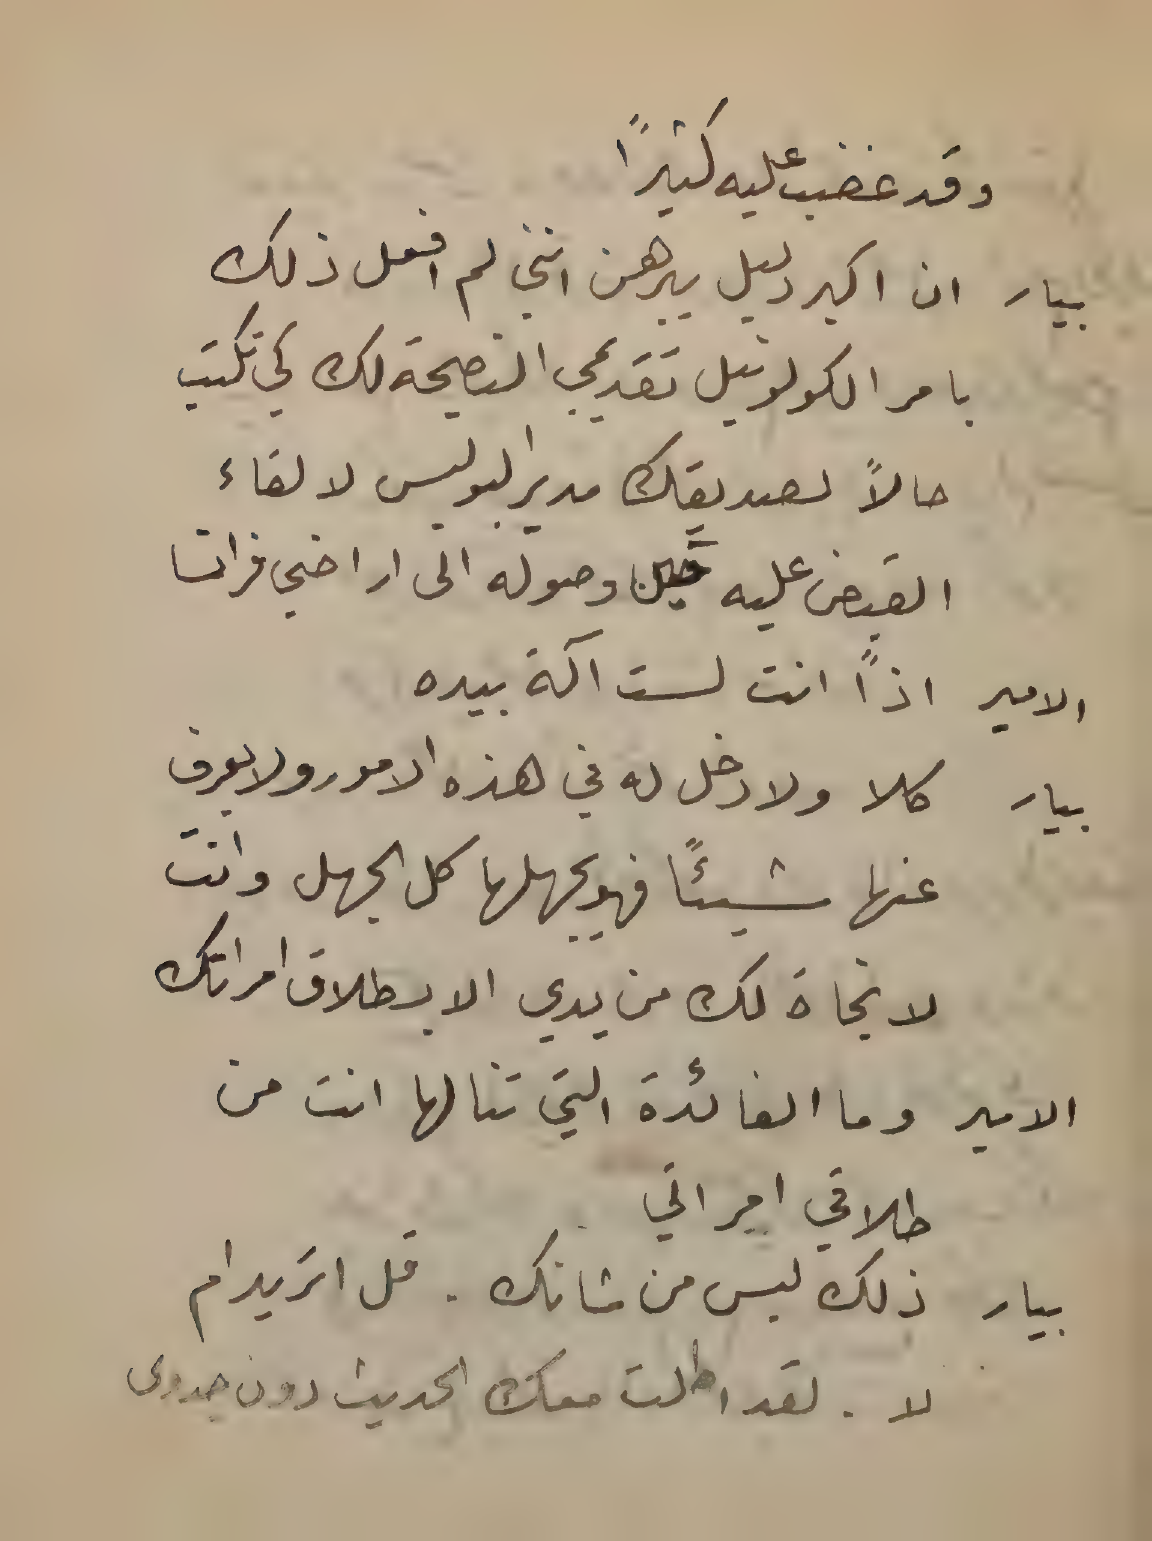 وقد غضب عليه كثيرًا
بيار ان اكبر دليل يبرهن انني لم افعل ذلك
بامر الكولونيل تقديمي النصيحة لك كي تكتب
حالاً لصديقك مدير البوليس لالقاء
القبض عليه حين وصوله الى اراضي فرانسا
الامير اذاً انت لست آلة بيده
بيار كلا ولا دخل له في هذه الامور ولا يعرف
عنها شيئًا فهو يجهلها كل الجهل وانت
لا نجاة لك من يدي الا بطلاق امراتك
الامير وما الفائدة التي تنالها انت من
طلاقي امراتي
بيار ذلك ليس من شانك . قل اتريد ام
لا . لقد اطلت معك الحديث دون جدوى